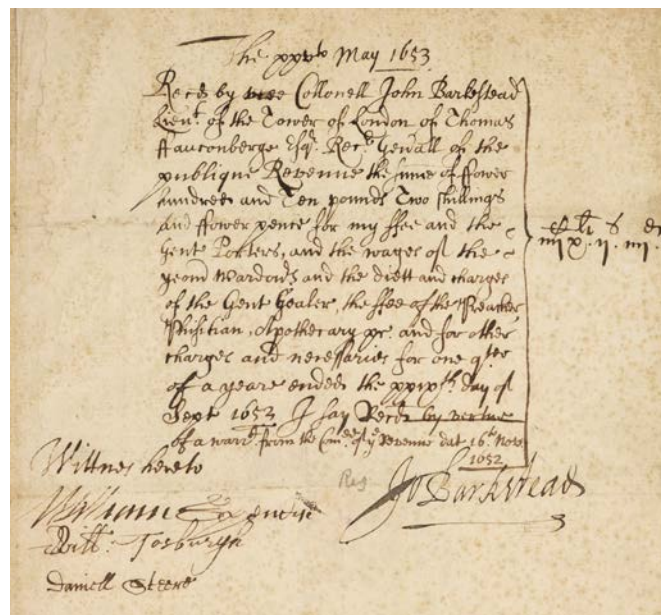 The xxvth May 1653
Recd by mee Collonell John Barkstead
Lieut. of the Tower of London of Thomas
ffauconberge Esqr. Recr. Gen'all of the
publique Revenue the sume of ffower
hundred and Ten pounds Two shillings
and ffower pence for my ffee and the
Gent Porters, and the wages of the
yeom Wardors and the diett and charges
of the Gent Goaler, the ffee of the Preacher
Phisitian, Apothecary &c. and for other
charges and necessaries for one qter
of a yeare ended the xxixth. day of
Sept 1652 I say Recd by vertue
of a warrt. from the Com.ee of ye Revenue dat 16th Nov.
1652
li s d
iiij x. ij. iiij.
Wittnes hereto
William
Will.
Daniell Steere
Reg
Jo Barkstead